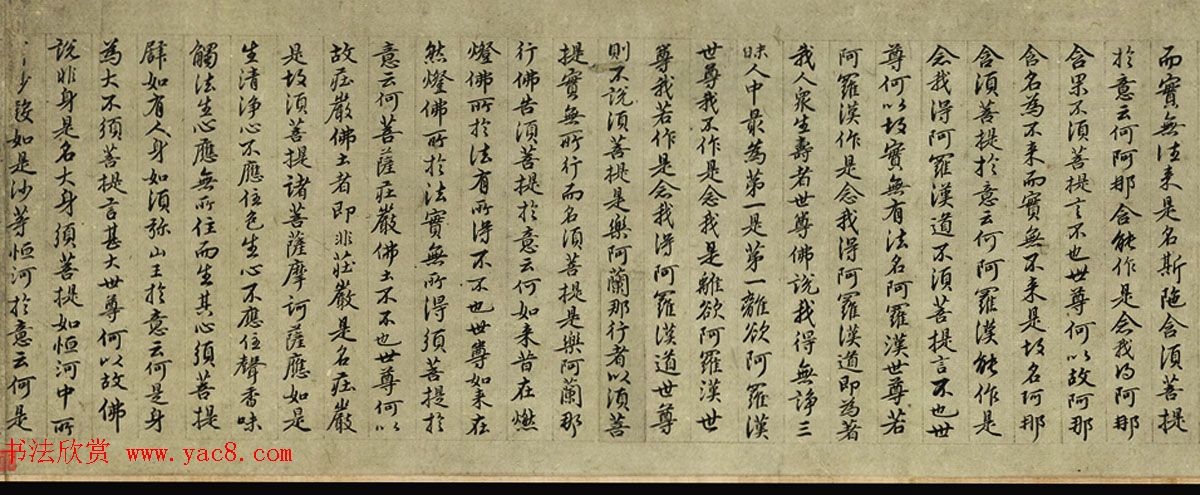 而實無往来是名斯陁含須菩提
於意云何阿那含能作是念我得阿那
含果不須菩提言不也世尊何以故阿那
含名為不来而實無不来是故名阿那
含須菩提於意云何阿羅漢能作是
念我得阿羅漢道不須菩提言不也世
尊何以故實無有法名阿羅漢世尊若
阿羅漢作是念我得阿羅漢道即為著
我人衆生壽者世尊佛說我得無諍三
昧人中最為第一是第一離欲阿羅漢
世尊我不作是念我是離欲阿羅漢世
尊我若作是念我得阿羅漢道世尊
則不說須菩提是樂阿蘭那行者以須菩
提實無所行而名須菩提是樂阿蘭那
行佛告須菩提於意云何如来昔在燃
燈佛所於法有所得不不也世尊如来在
然燈佛所於法實無所得須菩提於
意云何菩薩莊嚴佛土不不也世尊何以
故莊嚴佛土者即非莊嚴是名莊嚴
是故須菩提諸菩薩摩訶薩應如是
生清淨心不應住色生心不應住聲香味
觸法生心應無所住而生其心須菩提
辟如有人身如須弥山王於意云何是身
為大不須菩提言甚大世尊何以故佛
說非身是名大身須菩提如恒河中所
如是沙等恒河於意云何是
书法欣赏 www.yac8.com